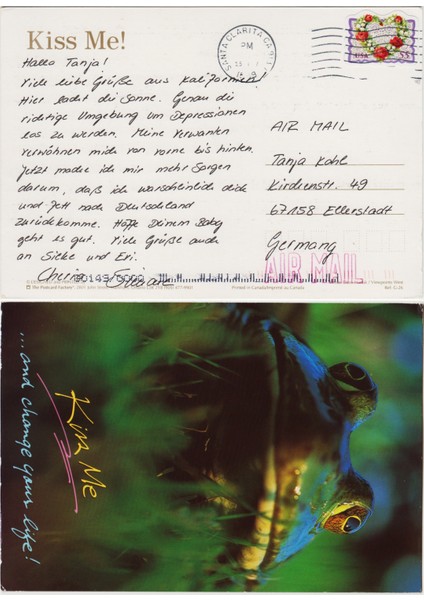 Kiss Me!
SANTA CLARITA CA
PM
USA 55
Hallo Tanja!
Viele liebe Grüße aus Kalifornien.
Hier lacht die Sonne. Genau die
richtige Umgebung um Depressionen
los zu werden. Meine Verwanten
verwöhnen mich von vorne bis hinten.
Jetzt mache ich mir mehr Sorgen
darum, daß ich warscheinlich dick
und fett nach Deutschland
zurückkomme. Hoffe Deinem Baby
geht es gut. Viele Grüße auch
an Sieke und Eri.
AIR MAIL
Tanja Kohl
Kirchenstr. 49
67158 Ellerstadt
Germany
AIR MAIL
The Postcard Factory
Printed in Canada/Imprimé au Canada
Kiss Me
...and change your life!